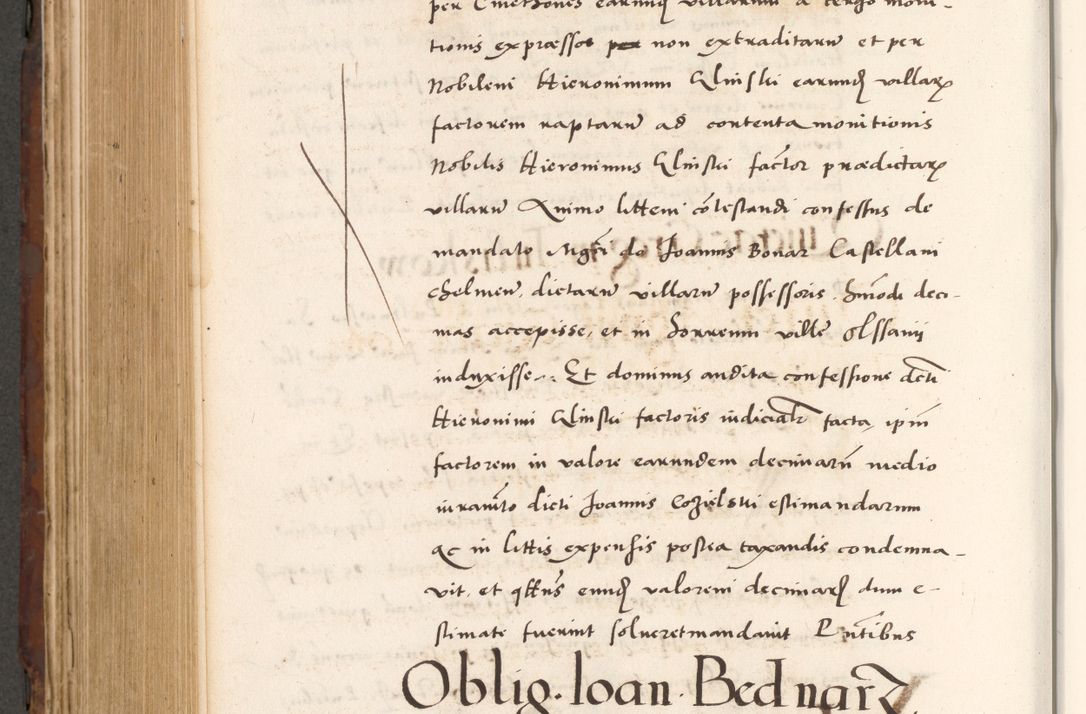 per Cmethones earund villarum a tergo moni-
tionis expræssos per non extraditarum et per
Nobilem Hieronimum Glinski earund villarum
factorem raptarum ad contenta monitionis
Nobilis Hieronimus Glinski factor prædictarum
villarum Animo littem contestandi confessus de
mandato Mgfci do Joannis Bonar Castellani
Chelmen. dictarum villarum possessoris hmodi deci-
mas accepisse, et in horreum ville Olssanij
induxisse. Et dominus audita confessione dicti
Hieronimi Glinski factoris iudicialr facta, ipm
factorem in valore earundem decimarum medio
iuramto dicti Joannis Cozielski estimandarum
ac in littis expensis postea taxandis condemna-
vit, et qttns eund valorem decimar dum e-
stimate fuerint solueret mandauit Pntibus
Oblig. Ioan. Bednarz